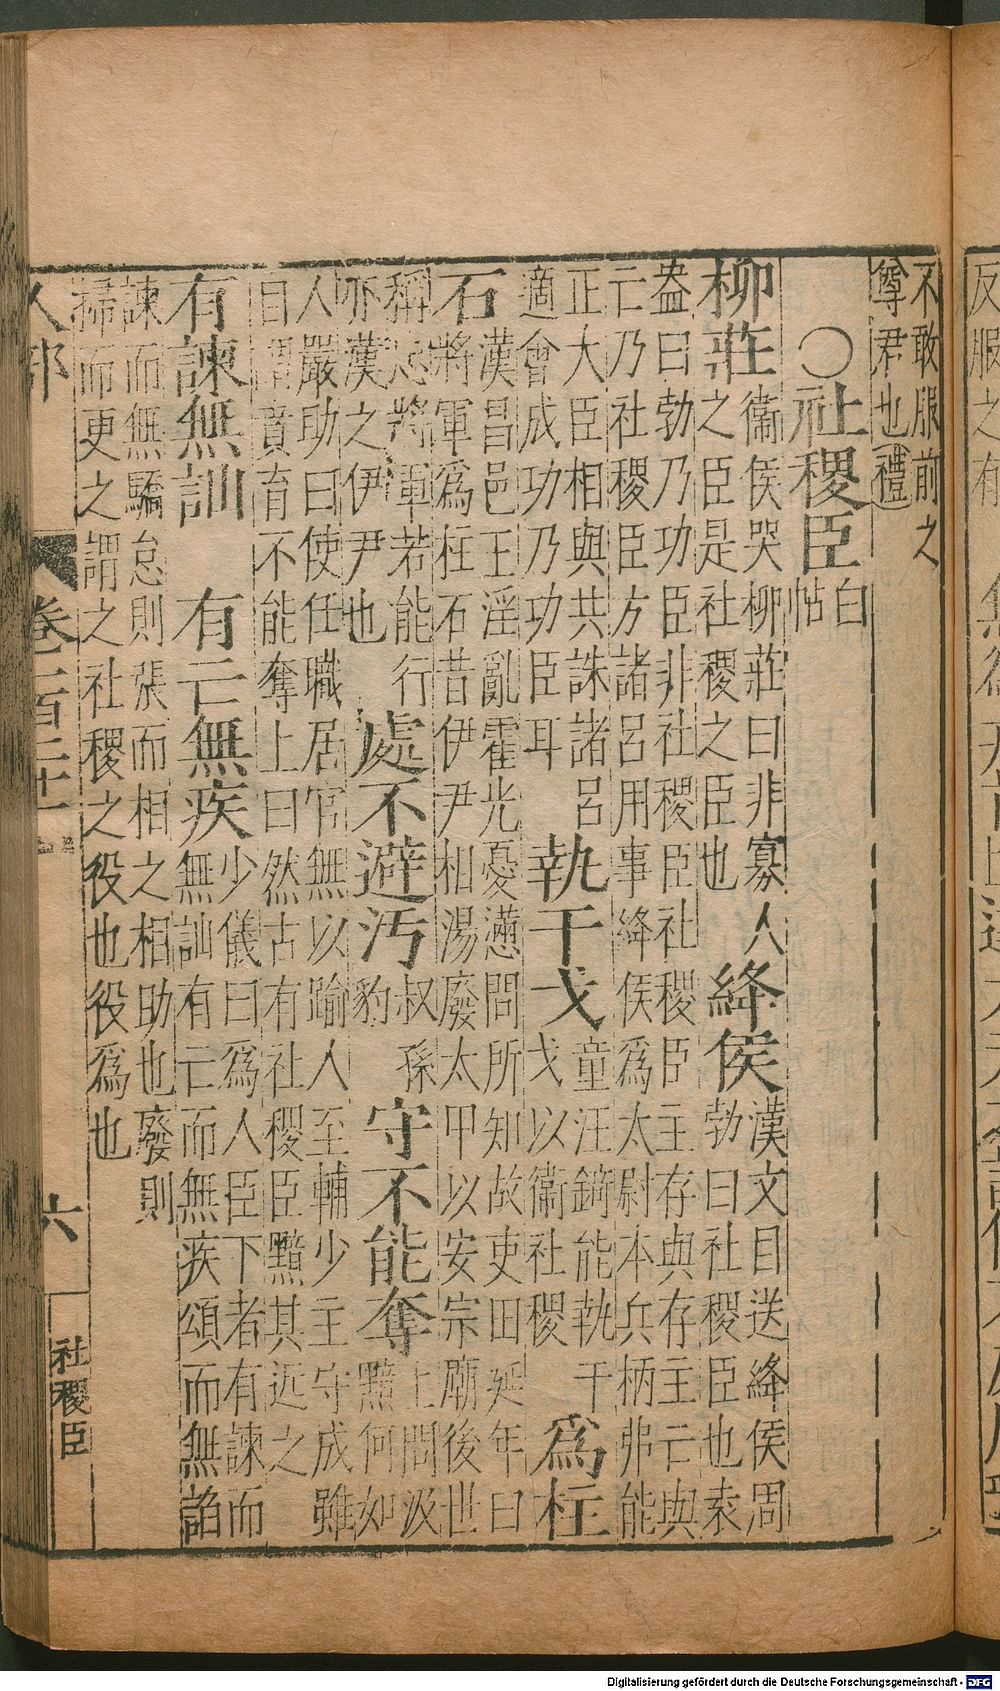 不敢服前之
尊君也禮
○社稷臣白
帖
柳莊衞侯哭柳莊曰非寡人
之臣是社稷之臣也
絳侯漢文目送絳侯周
勃曰社稷臣也袁
盎曰勃乃功臣非社稷臣社稷臣主存與存主亡與
亡乃社稷臣方諸呂用事絳侯爲太尉本兵柄弗能
正大臣相與共誅諸呂
適會成功乃功臣耳
執干戈童汪錡能執干
戈以衞社稷
爲柱
石漢昌邑王淫亂霍光憂懣問所知故吏田延年曰
將軍爲柱石昔伊尹相湯廢太甲以安宗廟後世
稱忠將軍若能行
亦漢之伊尹也
處不避汚叔孫
豹
守不能奪上問汲
黯何如
人嚴助曰使任職居官無以踰人至輔少主守成雖
自謂賁育不能奪上曰然古有社稷臣黯其近之
有諫無訕 有亡無疾少儀曰爲人臣下者有諫而
無訕有亡而無疾頌而無諂
諫而無驕怠則張而相之相助也廢則
掃而更之謂之社稷之役也役爲也
人部
卷 百二十
六
社稷臣
Digitalisierung gefördert durch die Deutsche Forschungsgemeinschaft - DFG